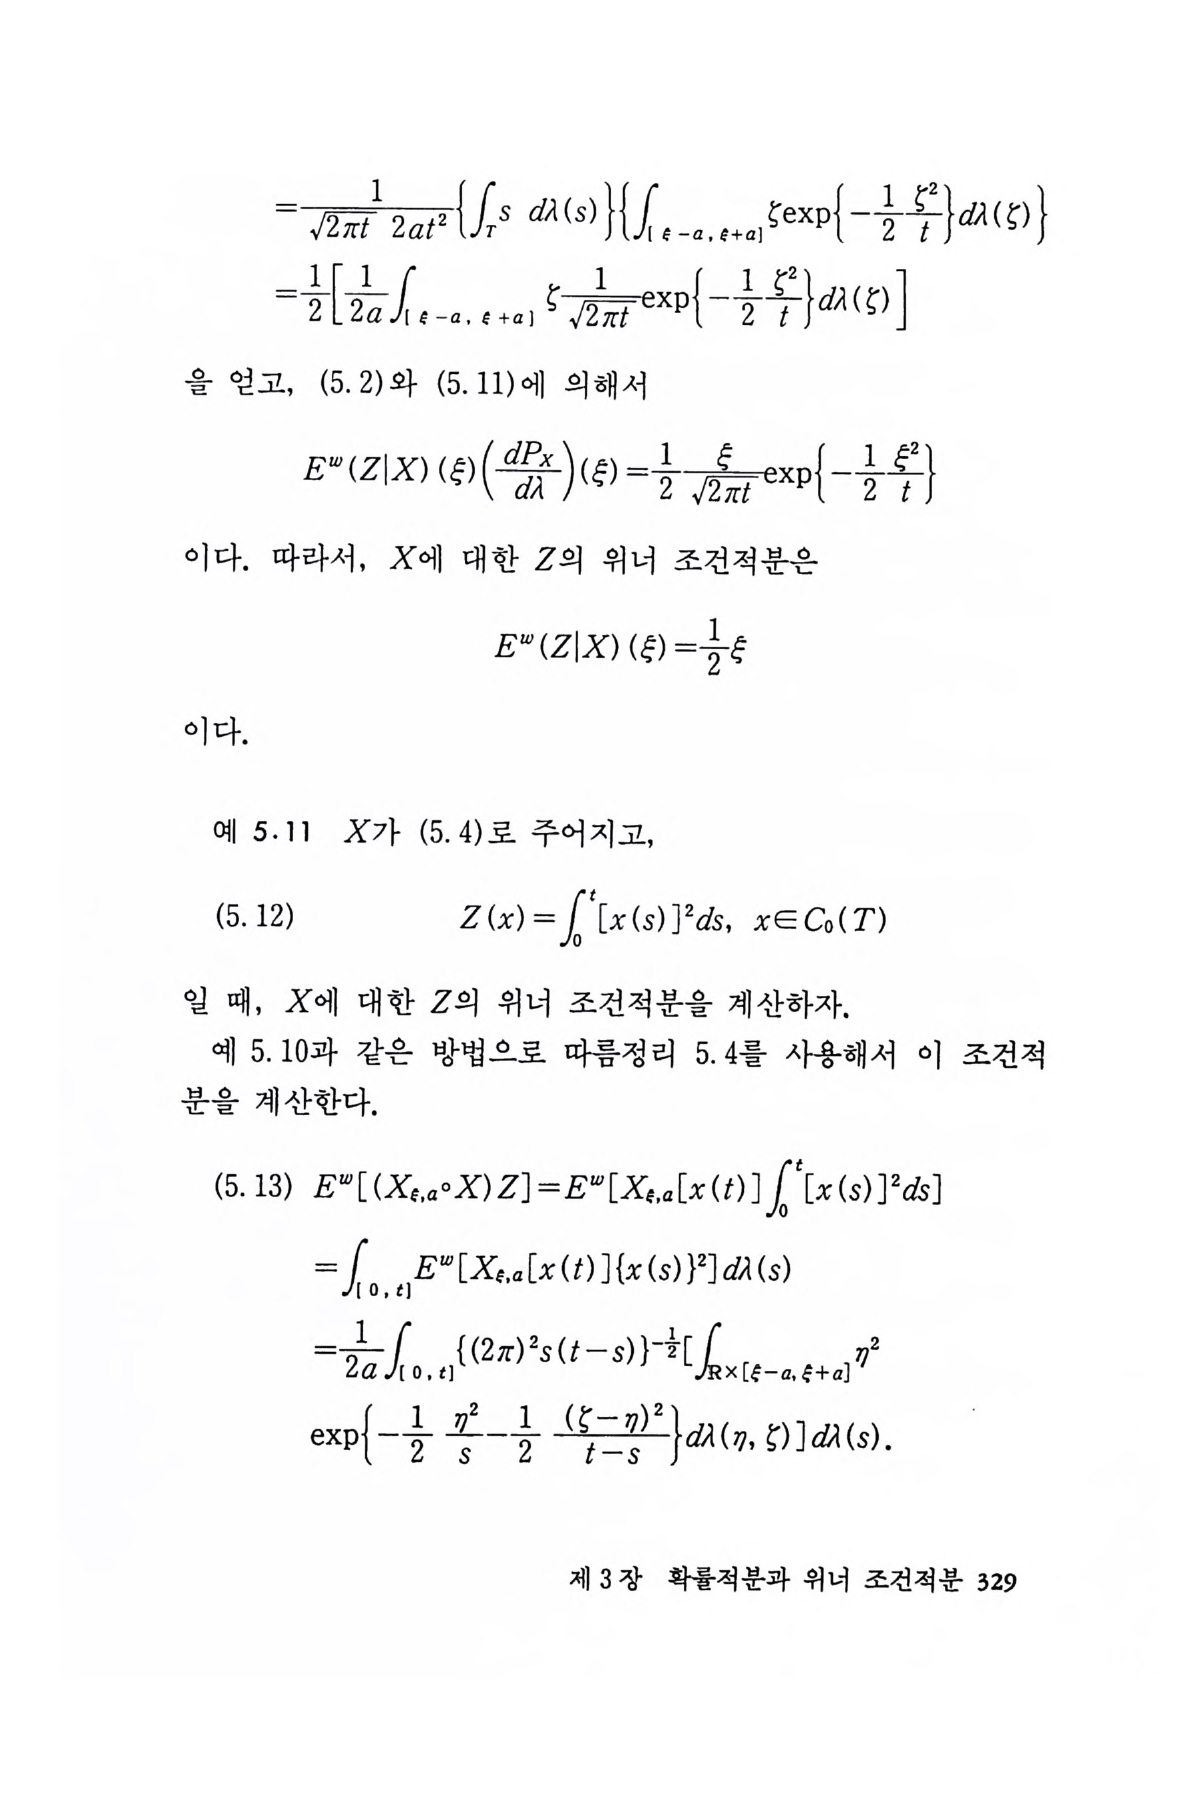 =\frac{1}{\sqrt{2πt} 2at²}{∫_T s dλ(s)}{∫_{[ξ-a, ξ+a]} ζexp{-\frac{1}{2}\frac{ζ²}{t}}dλ(ζ)}
=\frac{1}{2}[\frac{1}{2a}∫_{[ξ-a, ξ+a]} ζ\frac{1}{\sqrt{2πt}}exp{-\frac{1}{2}\frac{ζ²}{t}}dλ(ζ)]
을 얻고, (5.2)와 (5.11)에 의해서
E^w(Z|X)(ξ)(\frac{dP_X}{dλ})(ξ)=\frac{1}{2}\frac{ξ}{\sqrt{2πt}}exp{-\frac{1}{2}\frac{ξ²}{t}}
이다. 따라서, X에 대한 Z의 위너 조건적분은
E^w(Z|X)(ξ)=\frac{1}{2}ξ
이다.
예 5.11 X가 (5.4)로 주어지고,
(5.12) Z(x)=∫_0^t[x(s)]²ds, x∈C₀(T)
일 때, X에 대한 Z의 위너 조건적분을 계산하자.
예 5.10과 같은 방법으로 따름정리 5.4를 사용해서 이 조건적
분을 계산한다.
(5.13) E^w[(X_{ξ,a}∘X)Z]=E^w[X_{ξ,a}[x(t)]∫_0^t[x(s)]²ds]
=∫_{[0,t]}E^w[X_{ξ,a}[x(t)]{x(s)}²]dλ(s)
=\frac{1}{2a}∫_{[0,t]}{(2π)²s(t-s)}^{-\frac{1}{2}}[∫_{ℝ×[ξ-a,ξ+a]}η²
exp{-\frac{1}{2}\frac{η²}{s}-\frac{1}{2}\frac{(ζ-η)²}{t-s}}dλ(η, ζ)]dλ(s).
제 3 장 확률적분과 위너 조건적분 329